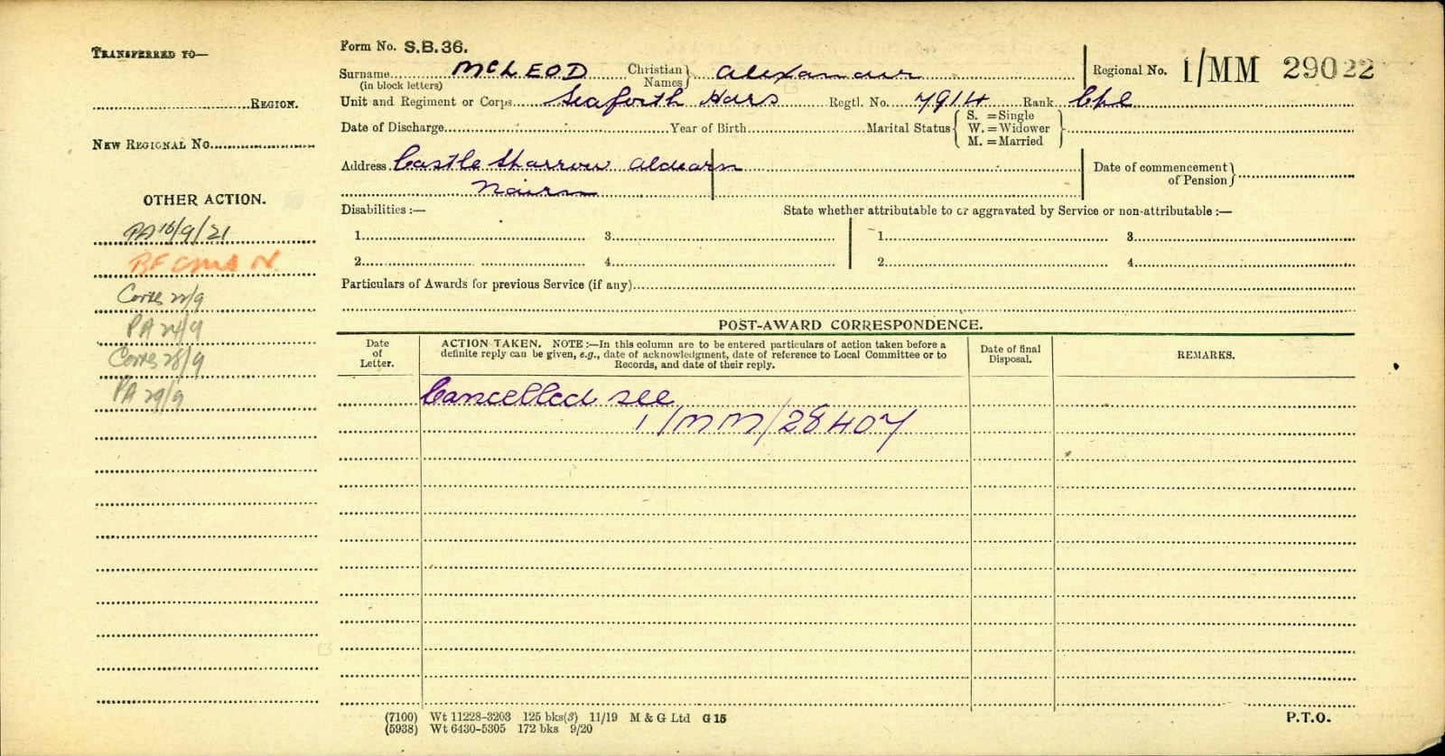 TRANSFERRED TO—
REGION.
NEW REGIONAL No.
OTHER ACTION.
PA 16/9/21
BF
Corres 22/9
PA 24/9
Corres 28/9
PA 29/9
Form No. S.B.36.
Surname MCLEOD Christian Names} Alexander Regional No. 1/MM 29022
(in block letters)
Unit and Regiment or Corps Seaforth Hdrs Regtl. No. 7914 Rank Cpl
Date of Discharge Year of Birth Marital Status { S. =Single W. =Widower M. =Married }
Address Castle Aldearn
Nairn
Date of commencement of Pension}
Disabilities :— State whether attributable to or aggravated by Service or non-attributable :—
1 3 1 3
2 4 2 4
Particulars of Awards for previous Service (if any)
POST-AWARD CORRESPONDENCE.
Date of Letter.
ACTION TAKEN. NOTE :—In this column are to be entered particulars of action taken before a
definite reply can be given, e.g., date of acknowledgment, date of reference to Local Committee or to
Records, and date of their reply.
Date of final Disposal.
REMARKS.
Cancelled see
1/MM/28407
(7100) Wt 11228-3203 125 bks(3) 11/19 M & G Ltd G 15
(5938) Wt 6430-5305 172 bks 9/20
P.T.O.